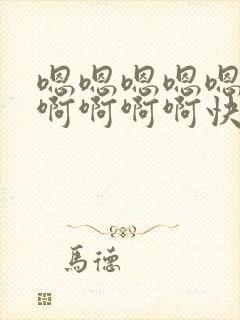 嗯嗯嗯嗯嗯
啊啊啊啊快
馬德